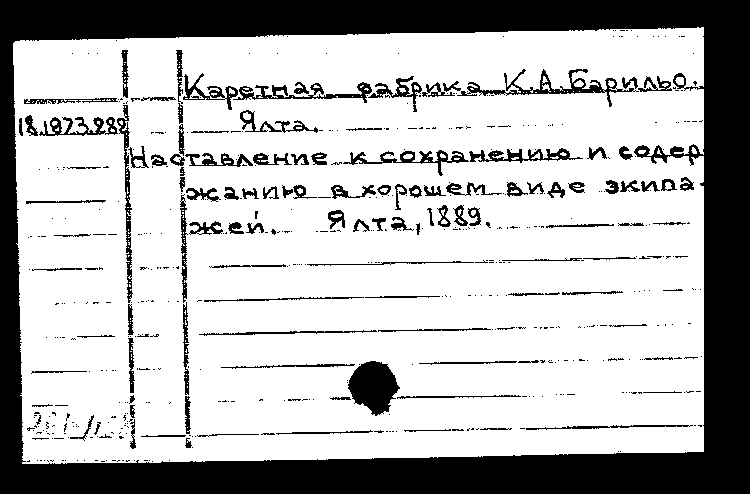 Каретная фабрика К.А.Барильо.
18.1973.282 Ялта.
Наставление к сохранению и содер
жанию в хорошем виде экипа-
жей. Ялта, 1889.